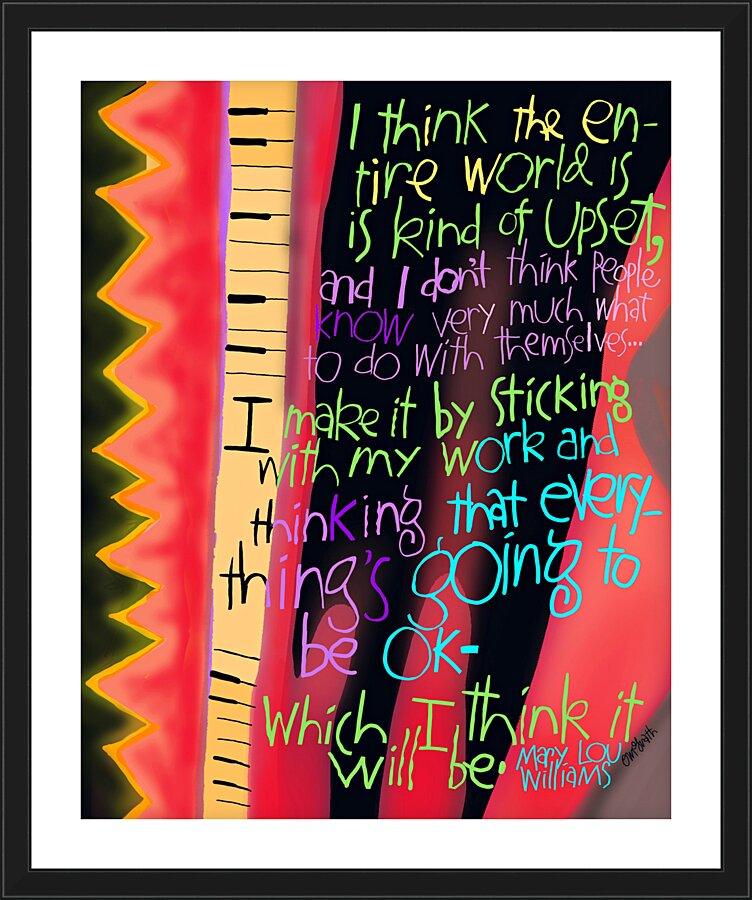 I think the en-
tire world is
is kind of upset,
and I don't think people
know very much what
to do with themselves...
I make it by sticking
with my work and
thinking that every-
thing's going to
be ok-
which I think it
will be.
Mary Lou
Williams